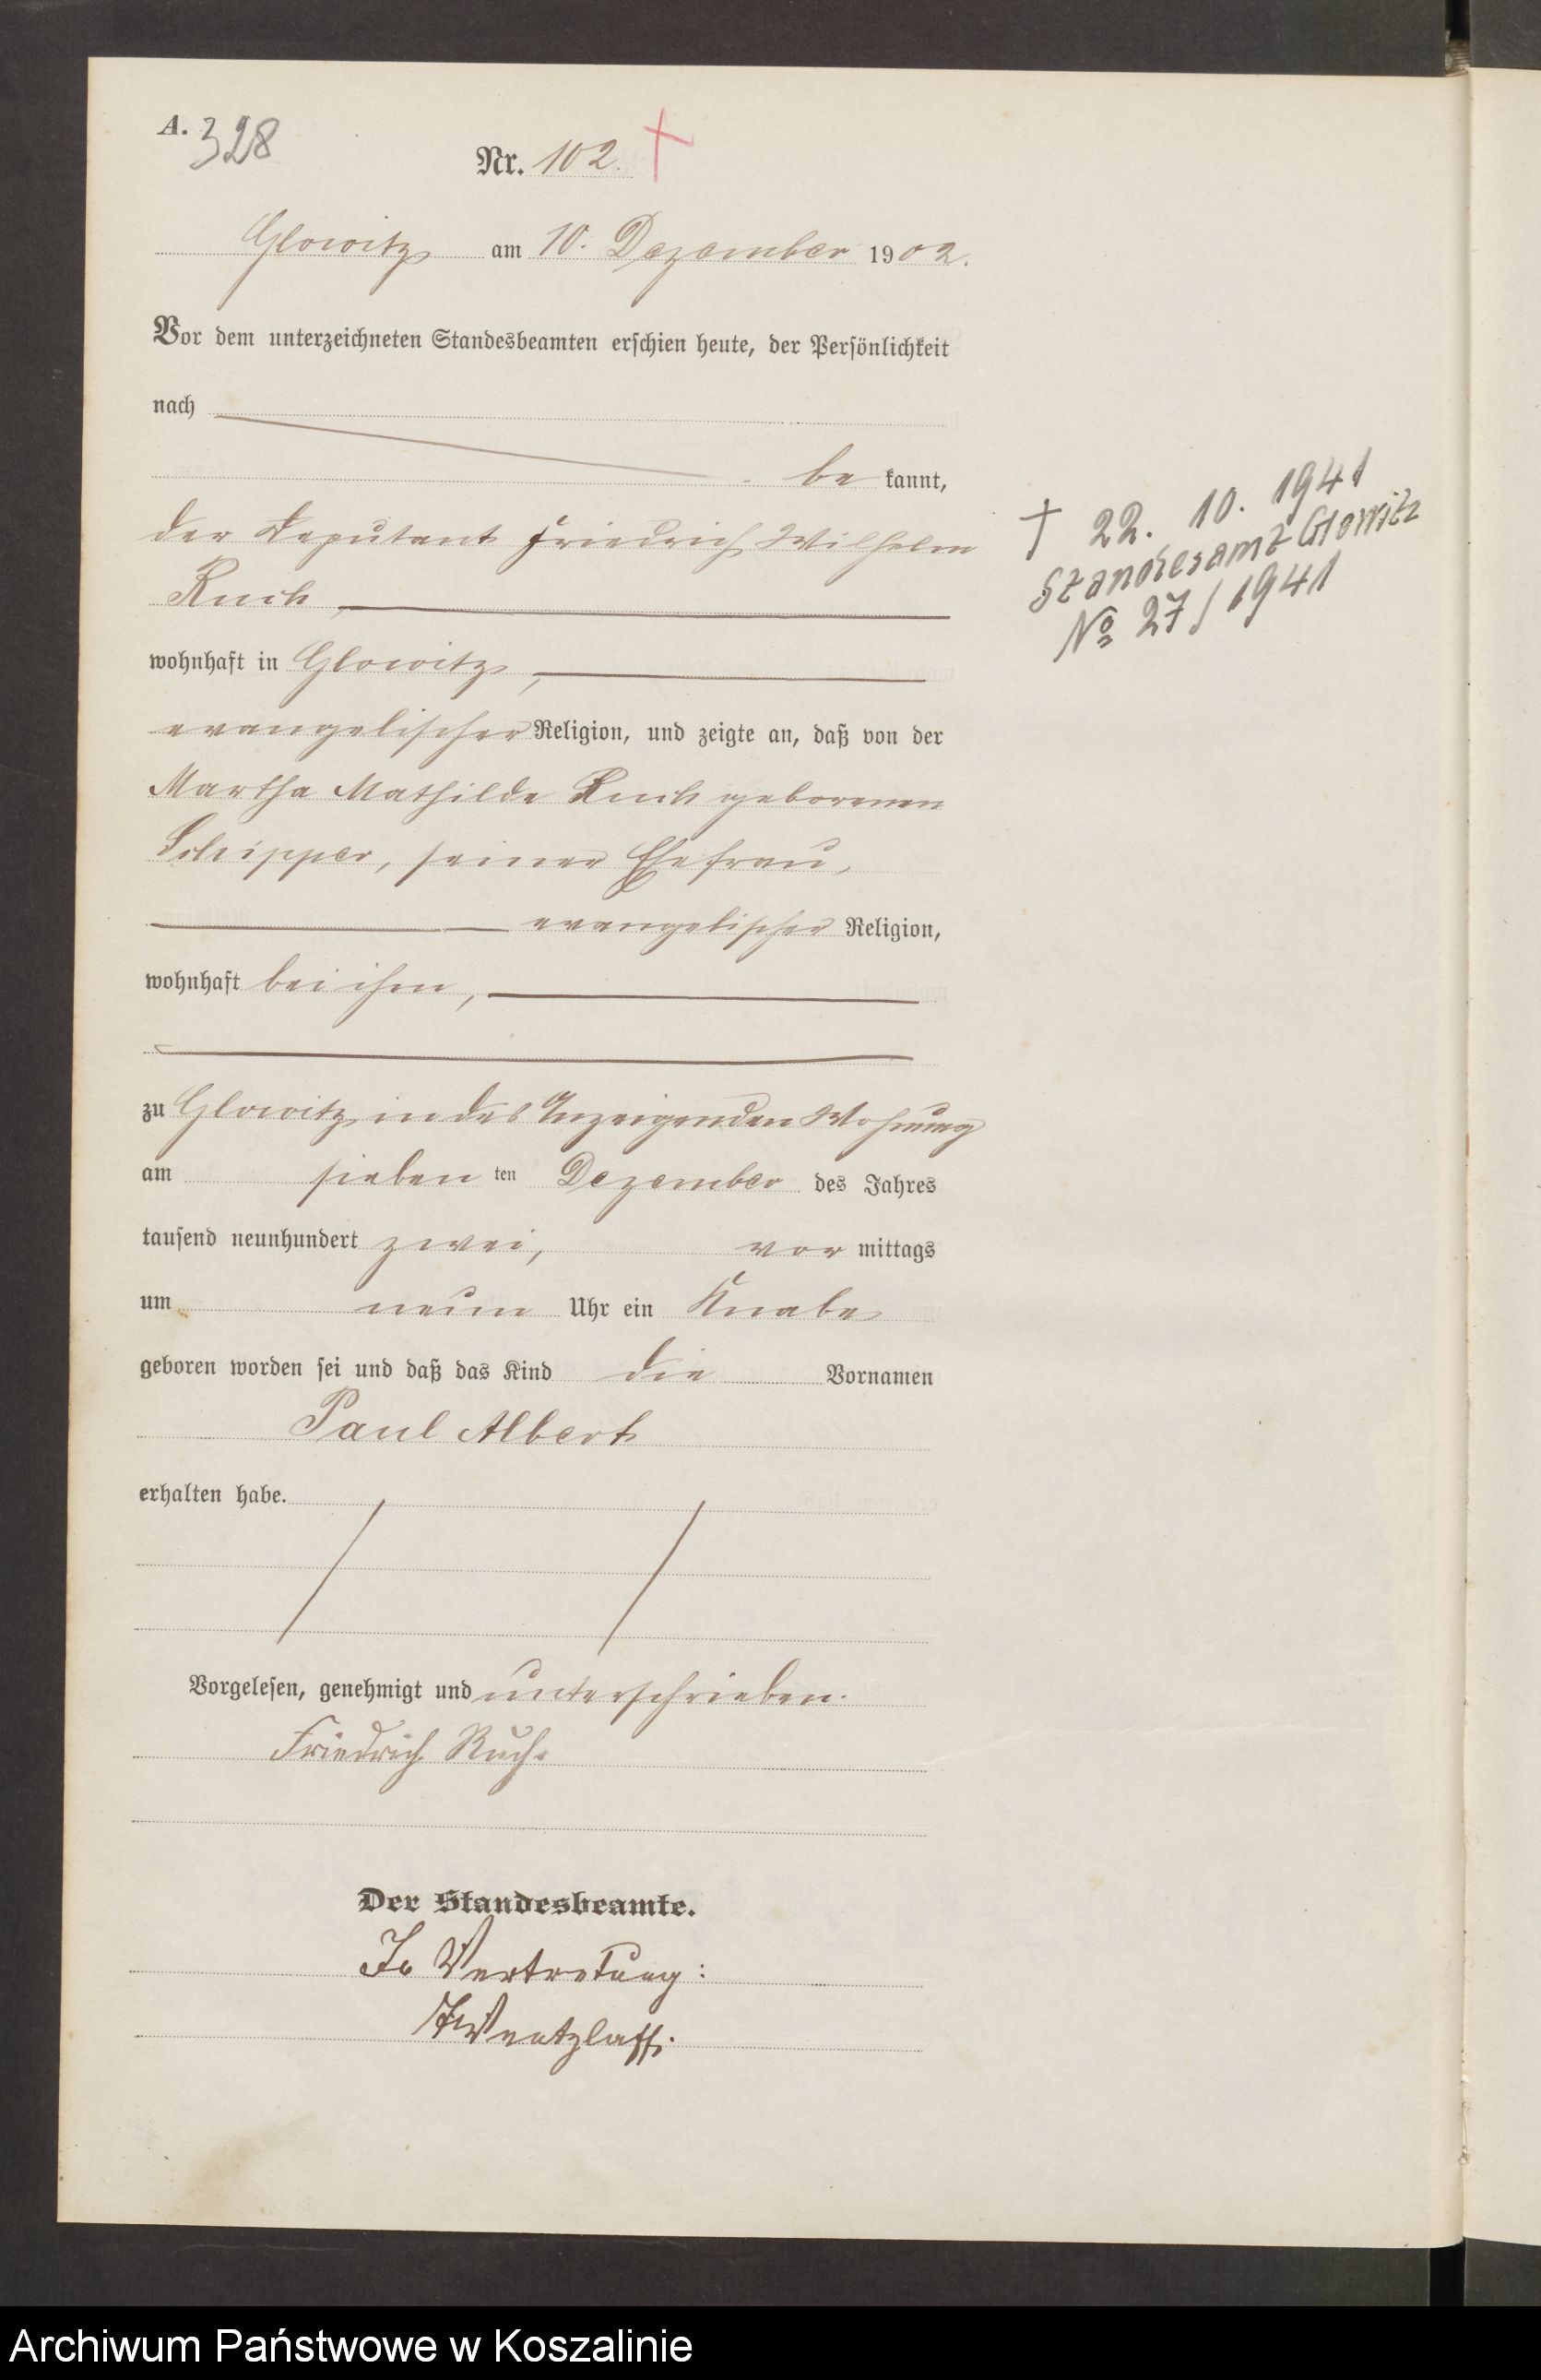 A. 328
Nr. 102.
Glowitz am 10. Dezember 1902.
Vor dem unterzeichneten Standesbeamten erschien heute, der Persönlichkeit
nach
be kannt,
der Deputant Friedrich Wilhelm
Ruch
wohnhaft in Glowitz,
evangelischer Religion, und zeigte an, daß von der
Martha Mathilde Ruch geborenen
Schipper, seiner Ehefrau,
evangelischer Religion,
wohnhaft bei ihm,
zu Glowitz in des Anzeigenden Wohnung
am sieben ten Dezember des Jahres
tausend neunhundert zwei, vor mittags
um neun Uhr ein Knabe
geboren worden sei und daß das Kind die Vornamen
Paul Albert
erhalten habe.
Vorgelesen, genehmigt und unterschrieben.
Friedrich Ruch
Der Standesbeamte.
In Vertretung:
Wentzlaff.
† 22. 10. 1941
Standesamt Glowitz
No 27/1941
Archiwum Państwowe w Koszalinie